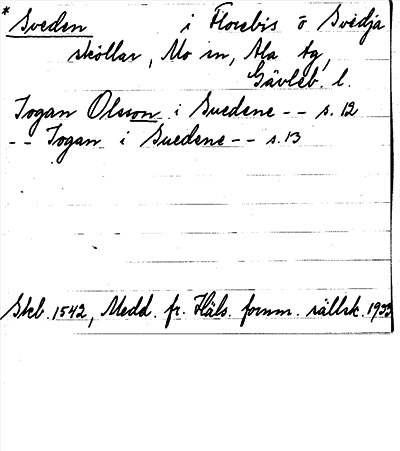 * Sveden i Florebis ö Svedja
sköllar, Mo sn, Ala tg,
Gävleb. l.
Jogan Olsson i Suedene -- s. 12
-- Jogan i Suedene -- s. 13
Skb. 1542, Medd. fr. Häls. fornm. sällsk. 1933